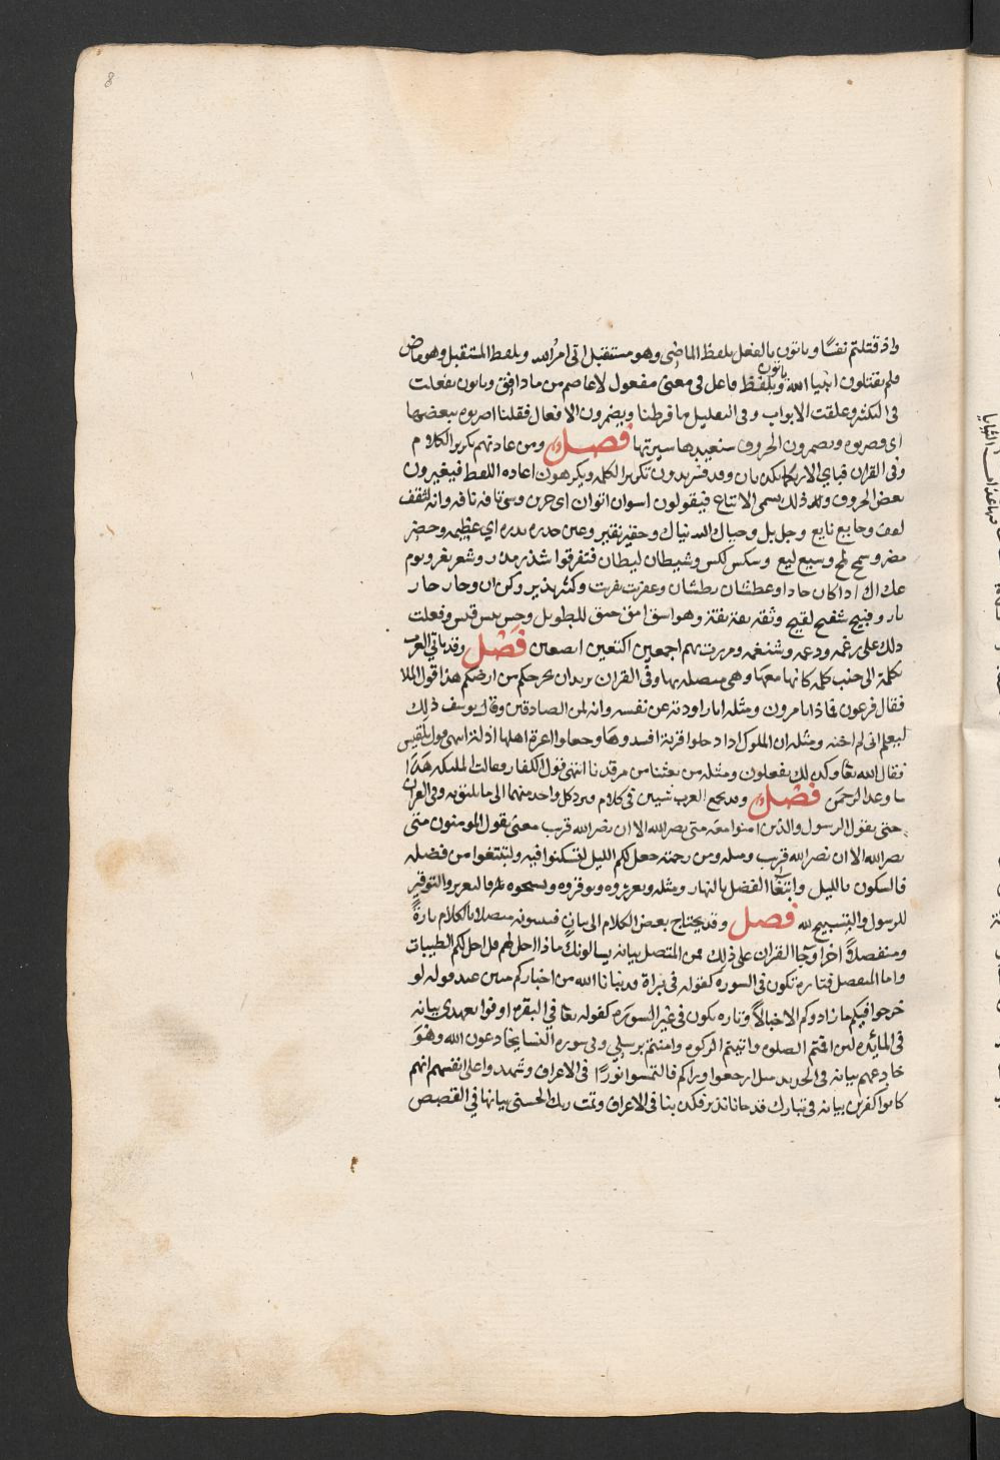 8
واذ قتلتم نفسًا وياتون بالفعل بلفظ الماضي وهو مستقبل اتى امرُ الله وبلفظ المستقبل وهو ماض
فلم تقتلون انبيا الله وياتون بلفظ فاعل في معنى مفعول لا عاصم من ما دافق وياتون بفعلت
في التكثير وعلقت الابواب وفي التقليل ما فرطنا ويضمرون الافعال فقلنا اضربوه ببعضها
اى فضربوه ويضمرون الحروف سنعيدها سيرتها فصل ومن عادتهم تكرير الكلام
وفي القران فباي الا ربكما تكذبان وقد يريدون تكرير الكلمه ويكرهون اعاده اللفظ فيغيرون
بعض الحروف وذلك يسمى الاتباع فيقولون اسوان اتوان اى حزن وشي تافه نافه وانه لثقف
لقف وجايع نايع وجل بل وحياك الله وبياك وحقير نقير وعين حدره بدره اى عظيمه وخضر
مضر وسمج لمج وسيع ليع وشكس لكس وشيطان ليطان فتفرقوا شذر مذر وشغر بغر ويوم
عك اك اذا كان حارا وعطشان نطشان وعفريت نفريت وكثير بذير وكز ان وحار جار
يار وقبيح شقيح لقيح وثقه تقه نقه وهو اشق امق حبق للطويل وفعلت
ذلك على رغمه ودغمه وشنغمه ومررت بهم اجمعين اكتعين ابصعين فصل وقد ياتي العرب
بكلمة الى جنب كلمه كانها معها وهي متصله بها وفي القران يريد ان يخرجكم من ارضكم هذا قول الملا
فقال فرعون فماذا تامرون ومثله انا راودته عن نفسه وانه لمن الصادقين وقال يوسف ذلك
ليعلم انى لم اخنه ومثله ان الملوك اذا دخلوا قرية افسدوها وجعلوا اعزة اهلها اذلة انتهى قول بلقيس
فقال الله تعا وكذلك يفعلون ومثله من بعثنا من مرقدنا انتهى قول الكفار وقالت الملئكه هذا
ما وعد الرحمن فصل وقد تجمع العرب شيين في كلام ويرد كل واحد منهما الى ما يليق به وفي القران
حتى يقول الرسول والذين امنوا معه متى نصر الله الا ان نصر الله قريب معنى يقول المومنون متى
نصر الله الا ان نصر الله قريب ومثله ومن رحمته جعل لكم الليل لتسكنوا فيه ولتبتغوا من فضله
فالسكون بالليل وابتغآ الفضل بالنهار ومثله وتعزروه وتوقروه وتسبحوه فالتعزير والتوقير
للرسول والتسبيح لله فصل وقد يحتاج بعض الكلام الى بيان فيبينونه متصلا بالكلام تارةً
ومنفصلاً اخرا وجا القران على ذلك فمن المتصل بيانه يسالونك ماذا احل لهم قل احل لكم الطيبات
واما المنفصل فتاره تكون في السوره كقوله في براة قد نبانا الله من اخباركم بين عند قوله لو
خرجوا فيكم ما زادوكم الا خبالاً وتاره يكون في غير السوره كقوله تعا في البقره اوفوا بعهدى بيانه
في المائده لئن اقمتم الصلوه واتيتم الزكوه وامنتم برسلي وفي سوره النسا يخادعون الله وهو
خادعهم بيانه في الحديد قيل ارجعوا وراكم فالتمسوا نورًا في الاعراف وشهدوا على انفسهم انهم
كانوا كفرين بيانه في تبارك قد جانا نذير فكذبنا في الاعراف وتمت كلمت ربك الحسنى بيانها في القصص